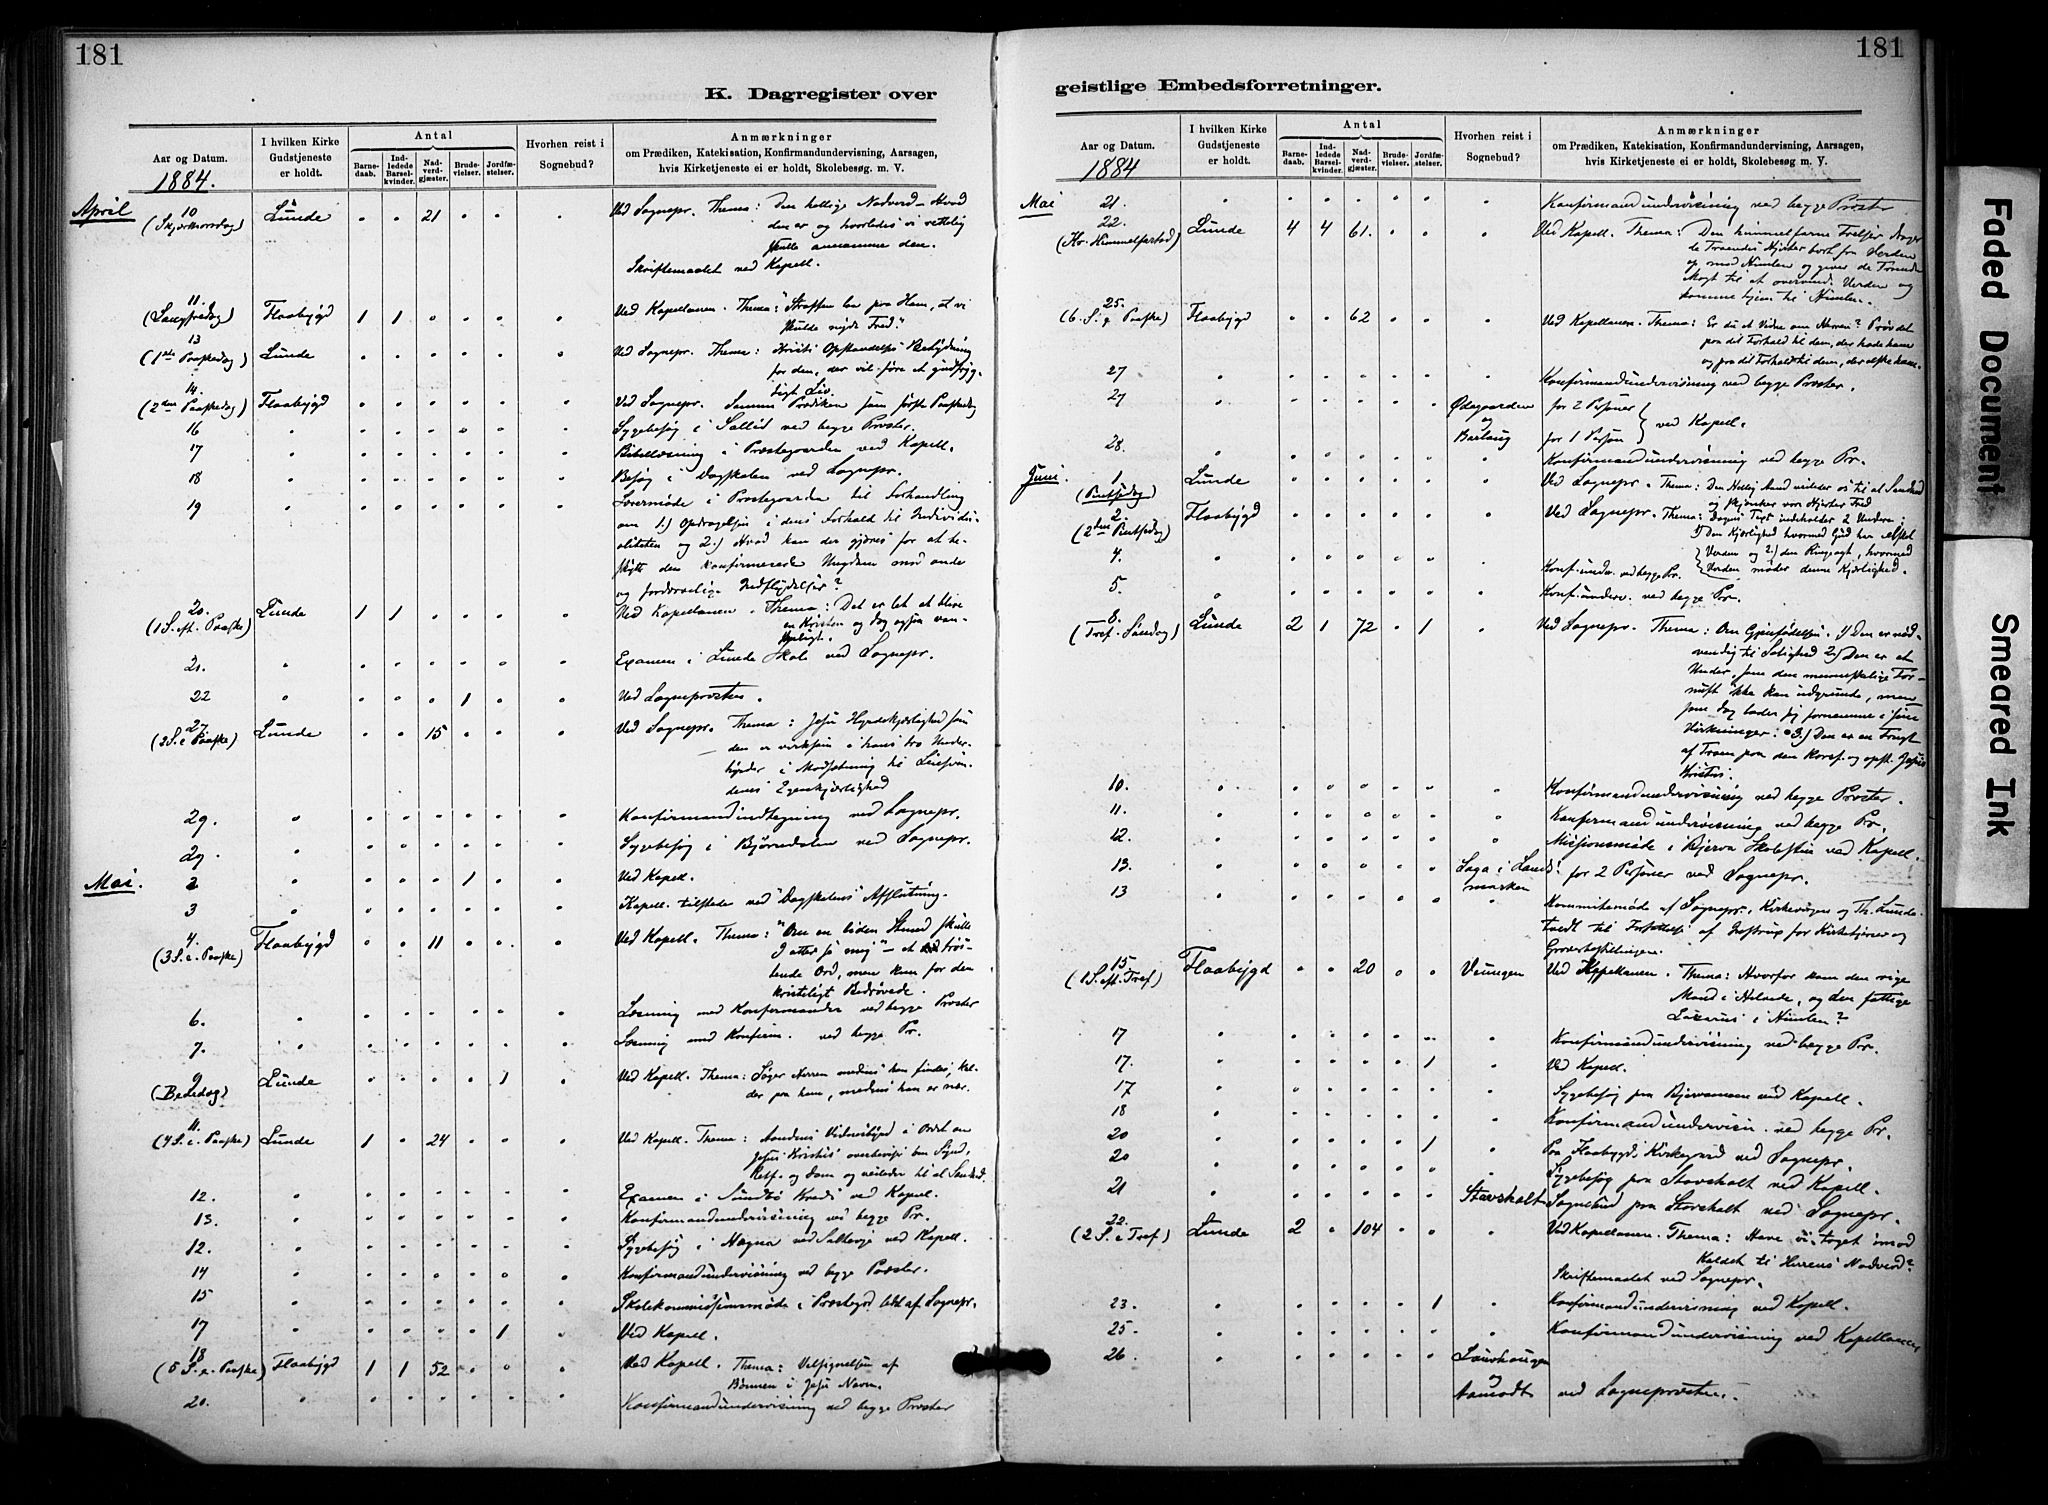 181
K. Dagregister over
Aar og Datum.
1884.
I hvilken Kirke Gudstjeneste er holdt.
Antal
Barnedaab.
Indledede Barselkvinder.
Nadverdgjæster.
Brudevielser.
Jordfæstelser.
Hvorhen reist i Sognebud?
Anmærkninger
om Prædiken, Katekisation, Konfirmandundervisning, Aarsagen,
hvis Kirketjeneste ei er holdt, Skolebesøg m. V.
April 10 Lunde " " 21 " " " Ved Sognepr. Thema: Den hellige Nadverd – Hvad
(Skjærthorsdag) den er og hvorledes vi rettelig
skulle annamme den.
Skriftemaalet ved Kapell.
11. (Langfredag) Flaabygd 1 1 " " " " Ved Kapellanen. Thema: "Straffen laa paa Ham, at vi
skulde nyde Fred."
13 (1ste Paaskedag) Lunde " " " " " " Ved Sognepr. Thema: Kristi Opstandelses Betydning
for den, der vil føre et gudfryg-
tigt Liv.
14. (2den Paaskedag) Flaabygd " " " " " " Ved Sognepr. Samme Prædiken som første Paaskedag
16 " " " " " " " Sygebesøg i ved begge Prester.
17 " " " " " " " Bibellæsning i Præstegaarden ved Kapell.
18 " " " " " " " Besøg i Dagskolen ved Sognepr.
19 " " " " " " " Lærermøde i Præstegaarden til Forhandling
om 1.) Opdragelsen i dens Forhold til Individu-
aliteten og 2.) Hvad kan der gjøres for at be-
skytte den konfirmerede Ungdom mod onde
og fordærvelige Indflydelser?
20. (1 S. eft. Paaske) Lunde 1 1 " " " " Ved Kapellanen. Thema: Det er let at blive
en Kristen og dog ogsaa van-
skeligt.
21. " " " " " " " Examen i Lunde Skole ved Sognepr.
22 " " " " 1 " " Ved Sognepresten.
27 (2 S. e Paaske) Lunde " " 15 " " " Ved Sognepr. Thema: Jesu Hyrdekjærlighed som
den er virksom i hans tro Under-
hyrder i Modsætning til Leiesven-
denes Egenkjærlighed
29. " " " " " " " Konfirmandindtegning ved Sognepr.
29. " " " " " " " Sygebesøg i Bjørndalen ved Sognepr.
Mai. 2 " " " " 1 " " Ved Kapell.
3 " " " " " " " Kapell. tilstede ved "Dagskolens" Afslutning.
4. (3 S. e. Paaske) Flaabygd " " 11 " " " Ved Kapell. Thema: "Om en liden Stund skulle
I atter se mig" – et trøs-
tende Ord, men kun for den
kristeligt Bedrøvede.
6. " " " " " " " Læsning med Konfirmander ved begge Prester
7. " " " " " " " Læsning med Konfirm. ved begge Pr.
9 (Bededag) Lunde " " " " 1 " Ved Kapell. Thema: Søger Herren medens han findes, kal-
der paa ham, medens han er nær.
11. (4 S. e. Paaske) Lunde 1 " 24 " " " Ved Kapell. Thema: Aandens Vidnesbyrd i Ordet om
Jesus Kristus overbevise om Synd,
Retf. og Dom og veileder til al Sandhed.
12. " " " " " " " Examen i Sundbø Kreds ved Kapell.
13. " " " " " " " Konfirmandundervisning ved begge Pr.
12. " " " " " " " Sygebesøg i Hægna ved ved Kapell.
14 " " " " " " " Konfirmandundervisning ved begge Præster.
15 " " " " " " " Skolekommissionsmøde i Præstegd. af Sognepr.
17 " " " " " 1 " Ved Kapell.
18 (5 S. e. Paaske) Flaabygd 1 1 52 " " " Ved Kapell. Thema: Velsignelsen af
Bønnen i Jesu Navn.
20. " " " " " " " Konfirmandundervisning ved begge Prester
181
geistlige Embedsforretninger.
Aar og Datum.
1884
I hvilken Kirke Gudstjeneste er holdt.
Antal
Barnedaab.
Indledede Barselkvinder.
Nadverdgjæster.
Brudevielser.
Jordfæstelser.
Hvorhen reist i Sognebud?
Anmærkninger
om Prædiken, Katekisation, Konfirmandundervisning, Aarsagen,
hvis Kirketjeneste ei er holdt, Skolebesøg m. V.
Mai 21. " " " " " " " Konfirmandundervisning ved begge Prester
22. (Kr. Himmelfartsd) Lunde 4 4 61. " " " Ved Kapell. Thema: Den himmelfarne Frelser drager
de Troendes Hjerter bort fra Verden
op mod Himlen og giver de Troende
Magt til at overvinde Verden og
komme hjem til Himlen.
25. (6. S. e. Paaske) Flaabygd " " 62 " " " Ved Kapellanen. Thema: Er du et Vidne om Herren? Prøv det
paa dit Forhold til dem, der hade ham
og paa dit Forhold til dem, der elske ham.
27 " " " " " " " Konfirmandundervisning ved begge Prester.
27 " " " " " Ødegaarden for 2 Personer
og } ved Kapell.
Barlaug for 1 Person
28. " " " " " " " Konfirmandundervisning ved begge Pr.
Juni 1. (Pintsedag) Lunde " " " " " " Ved Sognepr. Thema: Den Hellig Aand veileder os til al Sandhed
og skjænker vore Hjerter Fred
2. (2den Pintsedag) Flaabygd " " " " " " Ved Sognepr. Thema: Dagens Text indeholder 2 Undere:
1) Den Kjærlighed hvormed Gud har elsket
Verden og 2.) den Ringeagt, hvormed
Verden møder denne Kjærlighed.
4. " " " " " " " Konf. underv. ved begge Pr.
5. " " " " " " " Konf. underv. ved begge Pr.
8. (Tref. Søndag) Lunde 2 1 72 " 1 " Ved Sognepr. Thema: Om Gjenfødelsen. 1) Den er nød-
vendig til Salighed 2.) Den er et
Under, som den menneskelige For-
nuft ikke kan udgrunde, men
som dog lader sig fornemme i sine
Virkninger: 3.) Den er en Frugt
af Troen paa den korsf. og opst. Jesus
Kristus.
10. " " " " " " " Konfirmandundervisning ved begge Prester.
11. " " " " " " " Konfirmandundervisning ved begge Pr.
12. " " " " " " " Missionsmøde i Bjerva Skolestue ved Kapell.
13. " " " " " Saga i Lands- for 2 Personer ved Sognepr.
marken
13 " " " " " " " Kommitemøde af Sognepr., Kirkeværgen og Th. Lunde-
tvedt til Forfattelse af Instrux for Kirketjener og
15. (1 S. eft. Tref.) Flaabygd " " 20 " " Veungen Ved Kapellanen. Thema: Hvorfor kom den rige
Mand i Helvede, og den fattige
Lazarus i Himlen?
17 " " " " " " " Konfirmandundervisning ved begge Pr.
17. " " " " " 1 " Ved Kapell.
17 " " " " " " " Sygebesøg paa Bjervamoen ved Kapell.
18 " " " " " " " Konfirmandundervisn. ved begge Pr.
20 " " " " " 1 " Paa Flaabygds Kirkegaard ved Sognepr.
20 " " " " " " " Sygebesøg paa Stavsholt ved Kapell.
21 " " " " " " Stavsholt Sognebud paa Stavsholt ved Sognepr.
22. (2 S. e Tref.) Lunde 2 " 104 " " " Ved Kapellanen. Thema: Have vi taget imod
Kaldet til Herrens Nadverd?
Skriftemaalet ved Sognepr.
23. " " " " " 1 " Konfirmandundervisning ved Kapell.
25. " " " " " " " Konfirmandundervisning ved Kapellanen
26 " " " " " " Lauvhaugen
og
Aamodt ved Sognepresten.
Faded Document
Smeared Ink